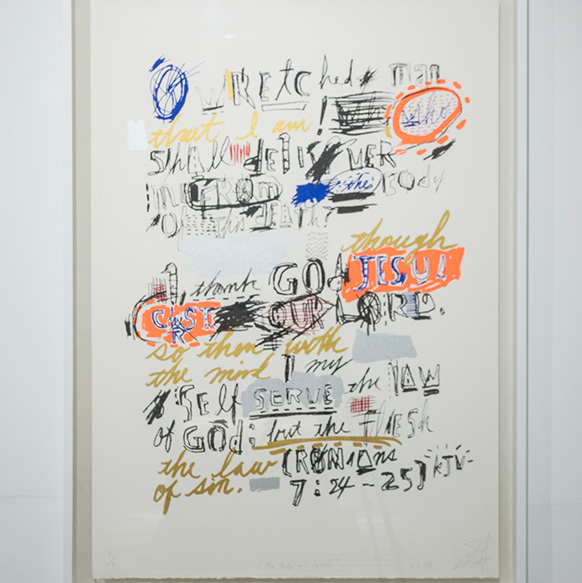 O WRETCHED MAN
that I am! who
Shall deliver
me from the Body
OF this death?
I thank GOD though JESUS
CHRIST OUR LORD.
so then with
the mind I my
Self SERVE the LAW
of GOD; but the Flesh
the law (ROMANS
of sin. 7:24-25) KJV